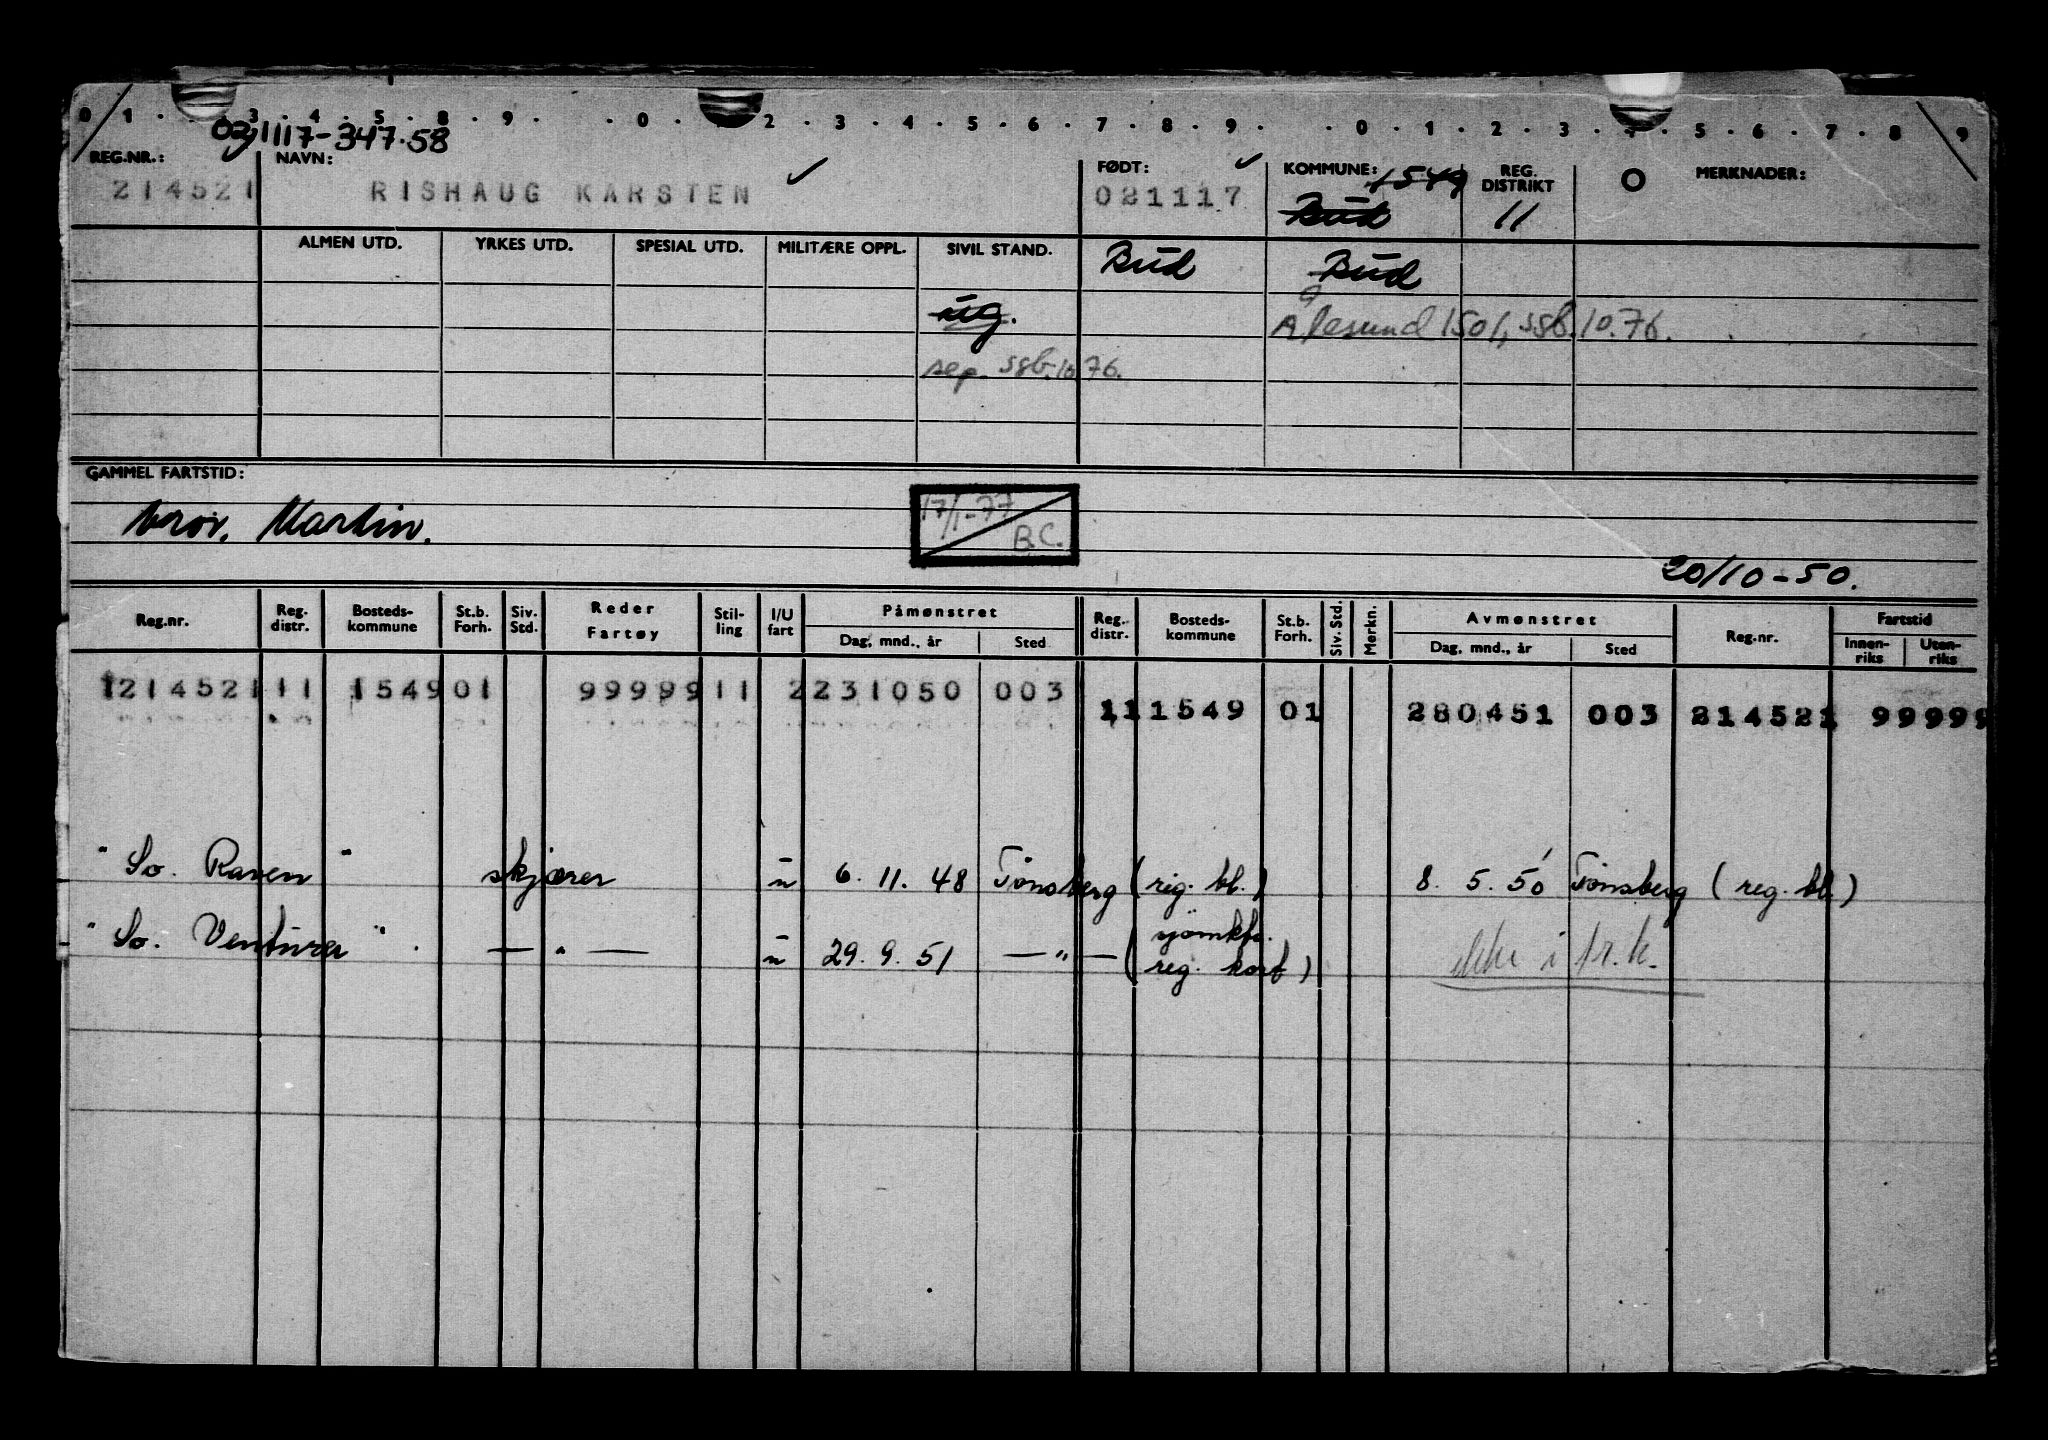 0 1 . . 3 . 4 . 5 . 8 . 9 . . 0 . . 2 . 3 . 4 . 5 . 6 . 7 . 8 . 9 . . 0 . 1 . 2 . 3 . 4 . 5 . 6 . 7 . 8 . 9
021117-347.58
REG.NR.: NAVN: FØDT: KOMMUNE: 1549 REG. DISTRIKT O MERKNADER:
214521 RISHAUG KARSTEN 021117 Bud 11
ALMEN UTD. YRKES UTD. SPESIAL UTD. MILITÆRE OPPL. SIVIL STAND. Bud Bud
ug. Ålesund 1501, ssb. 10.76.
sep. ssb. 10 76.
GAMMEL FARTSTID:
17/1-77
Martin. B.C.
20/10-50.
Reg.nr. Reg. distr. Bosteds-kommune St.b. Forh. Siv. Std. Reder Fartøy Stil-ling I/U fart Påmønstret Dag, mnd., år Sted Reg. distr. Bosteds-kommune St.b. Forh. Siv. Std. Merkn. Avmønstret Dag, mnd., år Sted Reg.nr. Fartstid Innen-riks Uten-riks
1214521 11 1549 01 99999 11 2 231050 003
11 1549 01 280451 003 214521 99999
" So. Raven " skjærer u 6. 11. 48 Tønsberg (reg. bl.) 8. 5. 50 Tønsberg (reg. bl.)
" So. Ventura " . — " — u 29. 9. 51 — " — (sjømktr. reg. kort) ikke i fr.k.